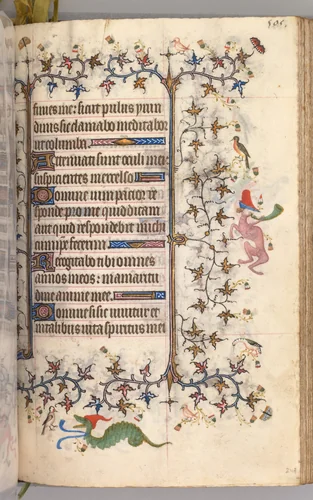 finies me: sicut pullus yrun
dinis sic clamabo meditabor
ut columba
Attenuati sunt oculi mei
suspicientes in excelso
Domine vim patior re
sponde pro me quid dicam
aut quid respondebit michi
cum ipse fecerim
Recogitabo tibi omnes
annos meos: in amaritu
dine anime mee.
Domine si sic vivitur et
in talibus vita spiritus mei